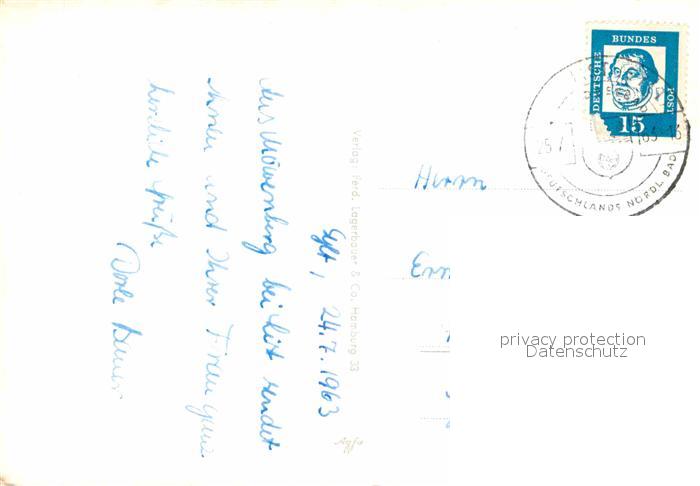 Sylt, 24.7.1963
Aus Möwenberg bei List sendet
Ihnen und Ihrer Frau ganz
herzliche Grüße
Dorle
Verlag Ferd. Lagerbauer & Co. Hamburg 33
Agfa
DEUTSCHE
BUNDES
POST
15
25.7.
63-13
DEUTSCHLANDS NORDL. BAD
Herrn
privacy protection
Datenschutz